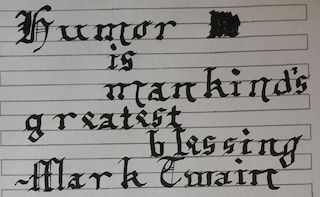 Humor
is
mankind's
greatest
blessing
~Mark Twain